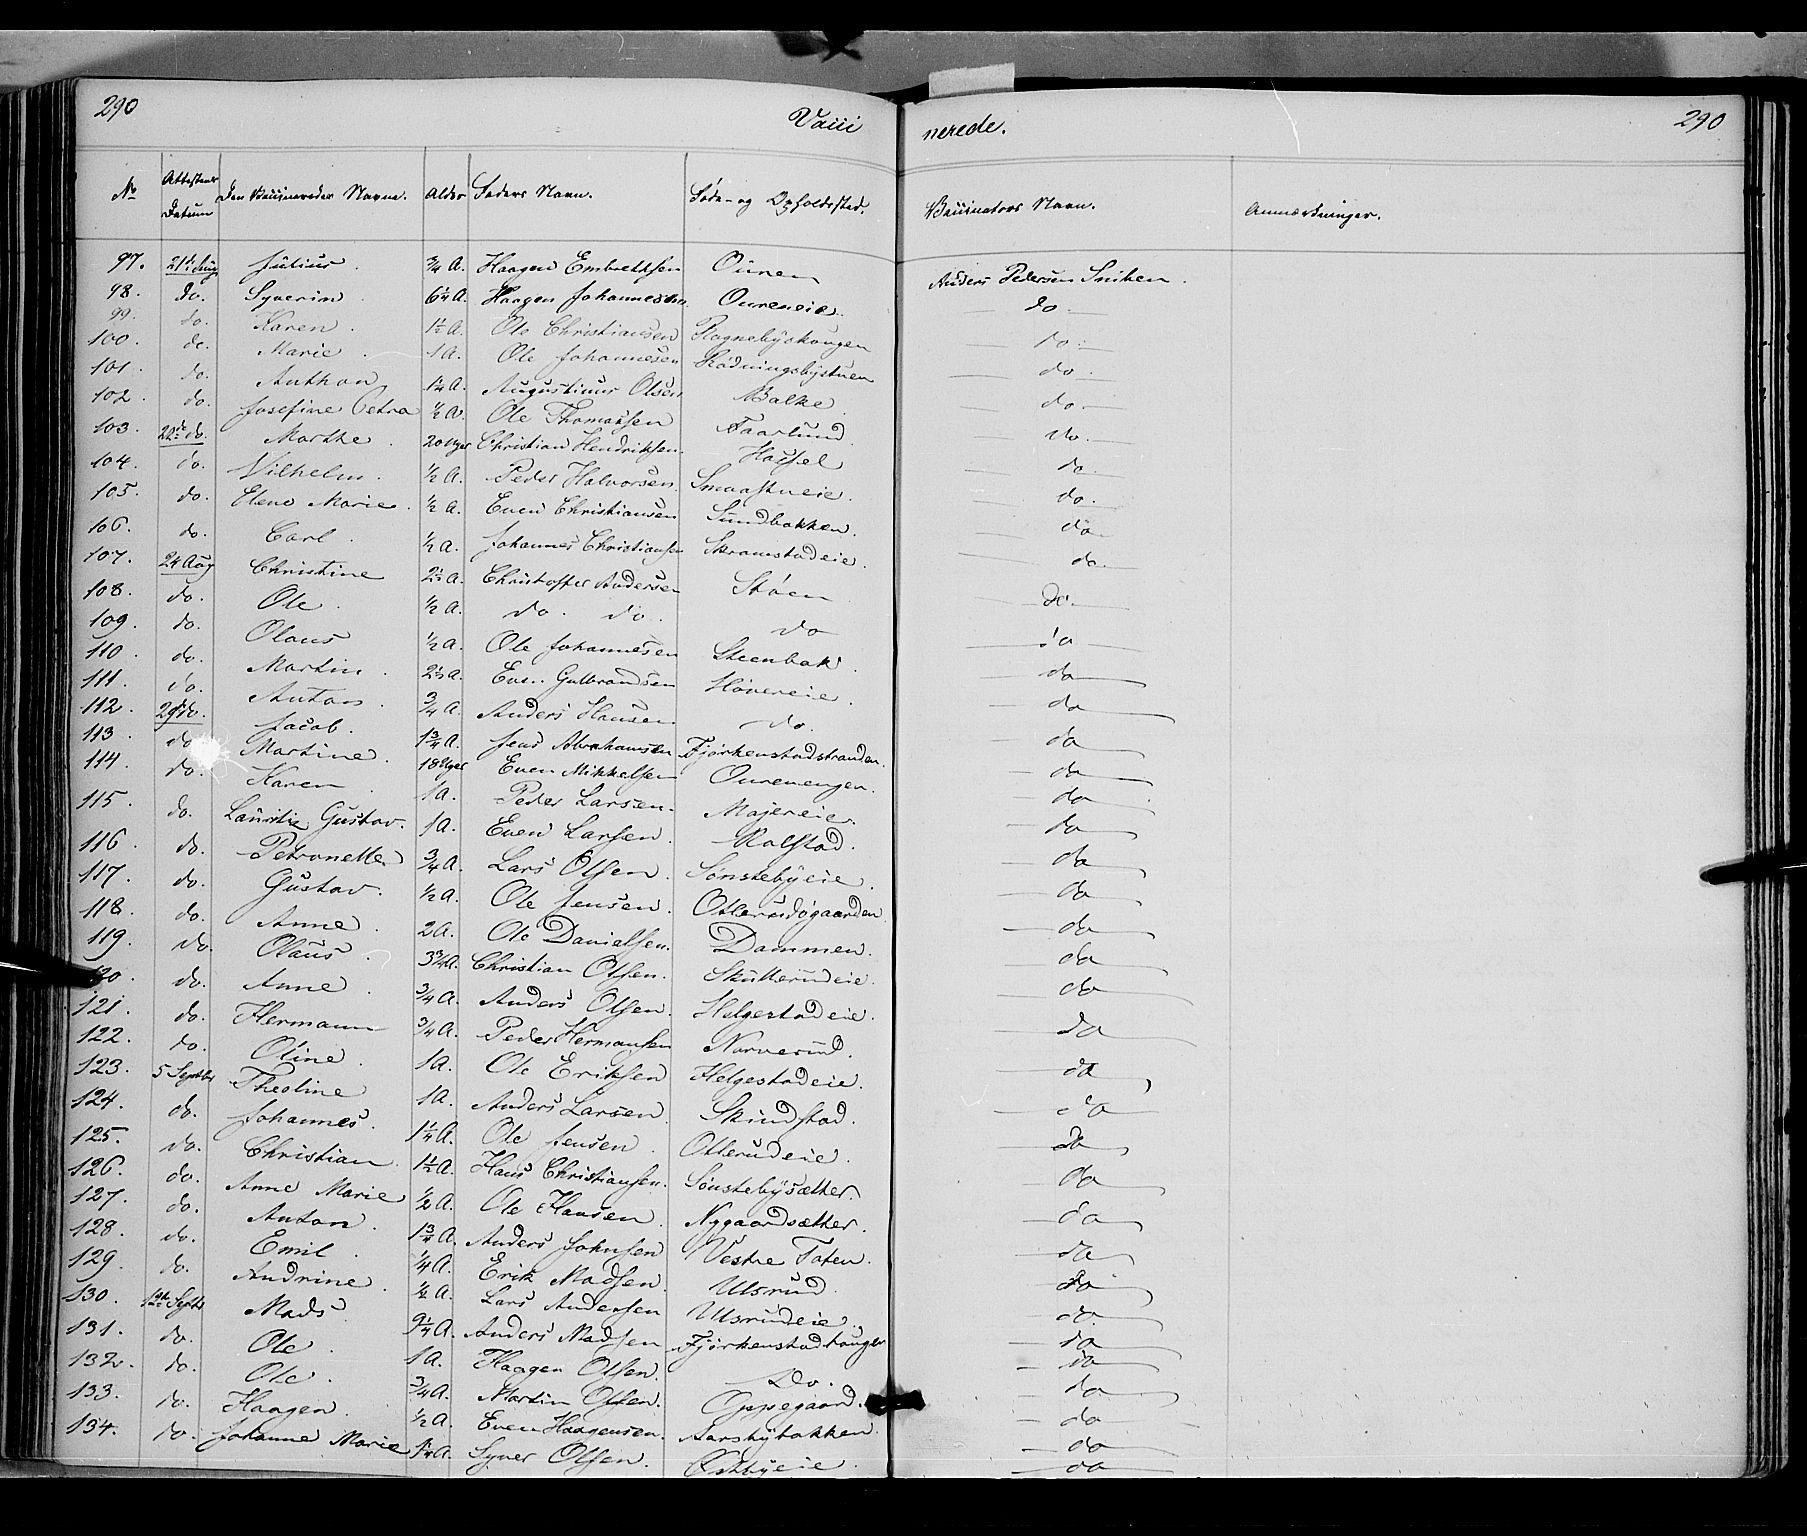 290 Vacci nerede. 290
No Attestens Datum Den Vaccineredes Navne. Alder Faders Navn. Føde- og Opholdssted. Vaccinators Navn. Anmærkninger.
97. 21de Aug Julius. 3/4 A. Haagen Embretsen Ouren Anders Pedersen Sniken.
98. do. Syverin 6 1/4 A. Haagen Johannesen Oureneie. do.
99. do. Karen. 1 1/2 A. Ole Christiansen Rognebyskougen do.
100. do. Marie. 1 A. Ole Johannesen Rødningsbystuen do.
101. do. Anthon 1 1/4 A. Augustinus Olsen Balke do.
102. do. Josefine Petra 1/2 A. Ole Thomassen Faarlund do.
103. 22de do. Marthe. 20 Uger Christian Hendriksen. Hassel do.
104. do. Vilhelm. 1/2 A. Peder Halvorsen. Smaastueie. do.
105. do. Elene Marie. 1/2 A. Even Christiansen Sundbakken. do
106. do. Carl. 1/2 A. Johannes Christiansen Skramstadeie. do.
107. 24 Aug Christine 2 1/2 A. Christoffer Andersen Støen do.
108. do. Ole. 1/2 A. do. do. do do
109. do. Olaus 1/2 A. Ole Johannesen Steenbak. do
110. do. Martin. 2 1/2 A. Even Gulbrandsen Høvereie. do
111. do. Anton. 3/4 A. Anders Hansen do. do
112. 29de do. Jacob. 1 3/4 A. Jens Abrahamsen Fjørkenstadstranden. do
113. do Martine. 18 Uger Even Mikkelsen Ourenengen. do
114. do. Karen 1 A. Peder Larsen. Majereie. do
115. do. Lauritz Gustav. 1 A. Even Larsen Kolstad. do
116. do. Petronelle 3/4 A. Lars Olsen. Sønstebyeie. do
117. do. Gustav. 1/2 A. Ole Jensen. Otterudsgaarden do
118. do. Anne. 2 A. Ole Danielsen. Dammen. do
119. do. Olaus. 3 3/4 A. Christian Olsen. Skutterudeie. do
120. do. Anne. 3/4 A. Anders Olsen. Helgestadeie. do
121. do. Hermann 3/4 A. Peder Hermansen Narverud. do
122. do. Oline. 1 A. Ole Eriksen Helgestadeie. do
123. 5 Septbr Theoline 1 A. Anders Larsen Skundstad. do
124. do. Johannes. 1 1/4 A. Ole Jensen. Otterudeie. do
125. do. Christian. 1 1/2 A. Hans Christiansen. Sønstebysætter. do
126. do. Anne Marie 1/2 A. Ole Hansen. Nygaardsætter. do
127. do. Anton. 1 3/4 A. Anders Johnsen Vestre Toten. do
128. do. Emil. 1/4 A. Erik Madsen. Ulsrud. do
129. do. Andrine. 1/2 A. Lars Andersen Ulsrudeie. do.
130. 12te Septbr Mads. 9 1/4 A. Anders Madsen Fjørkenstadhougen do
131. do. Ole. 1 A. Haagen Olsen. Do. do
132. do. Ole. 3/4 A. Martin Olsen. Oppegaard. do
133. do. Haagen. 1/2 A. Even Haagensen. Aarsbybakken. do
134. do. Johanne Marie 1 1/4 A. Syver Olsen. Østbyeie. do
do